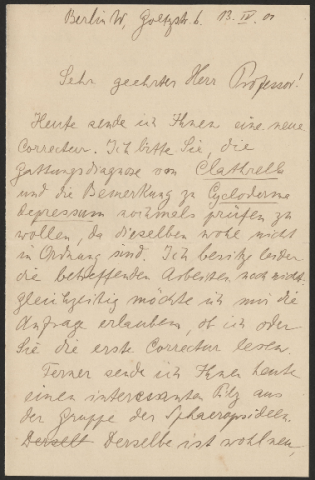 Berlin W, Goltzstr. 6. 13. IV. 01
Sehr geehrter Herr Professor!
Heute sende ich Ihnen eine neue
Correctur. Ich bitte Sie, die
Gattungsdiagnose von Clathrella
und die Bemerkung zu Cycloderma
depressum nochmals prüfen zu
wollen, da dieselben wohl nicht
in Ordnung sind. Ich besitze leider
die betreffenden Arbeiten noch nicht.
Gleichzeitig möchte ich mir die
Anfrage erlauben, ob ich oder
Sie die erste Correctur lesen.
Ferner sende ich Ihnen heute
einen interessanten Pilz aus
der Gruppe der Sphaeropsideen.
Derselbe ist wohl neu,